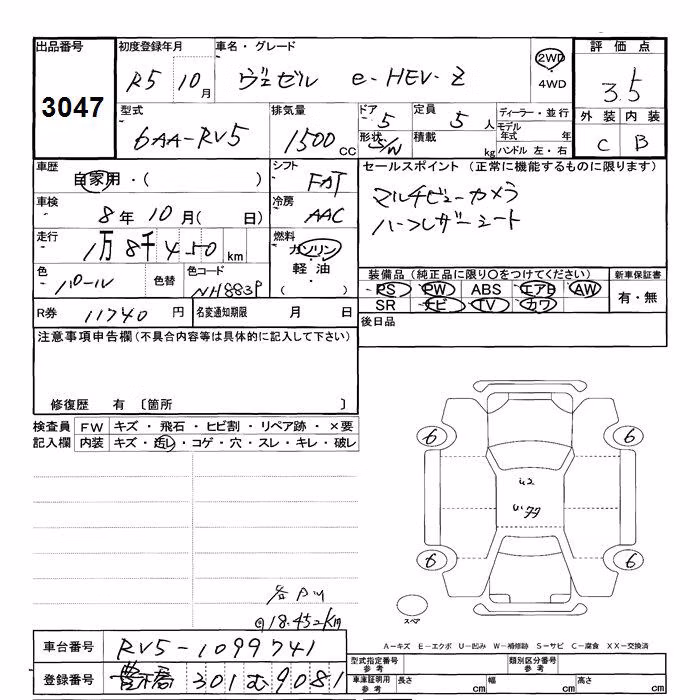 出品番号 3047
初度登録年月 R5 10月
車名・グレード ヴェゼル e-HEV-Z
2WD
4WD
評価点 3.5
型式 6AA-RV5
排気量 1500 CC
ドア 5
定員 5人
形状 S/W
積載 kg
ディーラー・並行
モデル年式 年
ハンドル 左・右
外装 C
内装 B
車歴 自家用・( )
シフト FAT
車検 8年10月( 日)
冷房 AAC
走行 1万8千450km
燃料 ガソリン・軽油 ( )
色 パール
色替
色コード NH883P
R券 11740円
名変通知期限 月 日
セールスポイント(正常に機能するものに限ります)
マルチビューカメラ
ハーフレザーシート
装備品(純正品に限り○をつけてください)
PS PW ABS エアB AW
SR ナビ TV カワ
新車保証書 有・無
後日品
注意事項申告欄(不具合内容等は具体的に記入して下さい)
修復歴 有 〔箇所 〕
検査員記入欄
FW キズ・飛石・ヒビ割・リペア跡・×要
内装 キズ・汚レ・コゲ・穴・スレ・キレ・破レ
6 6
6 6
スペア
18.452km
A-キズ E-エクボ U-凹み W-補修跡 S-サビ C-腐食 XX-交換済
車台番号 RV5-1099741
登録番号 豊橋 301 む 9081
型式指定番号 参考
類別区分番号 参考
車庫証明用 参考 長さ cm 幅 cm 高さ cm